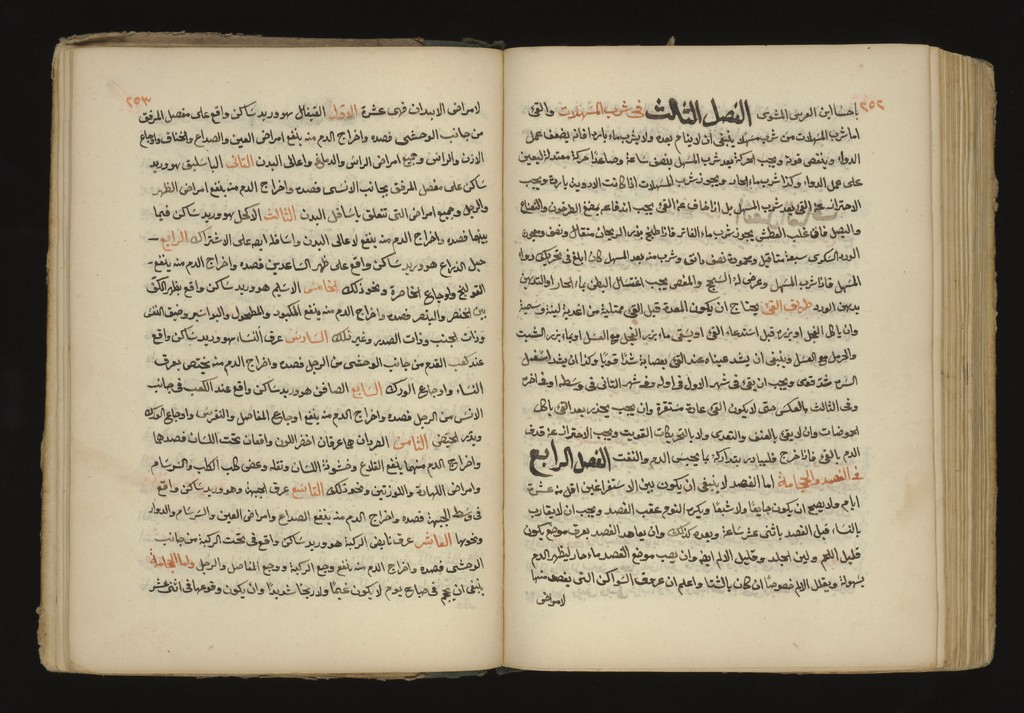 ٢٥٢
باحشاء ابن العربى المشوى الفصل الثالث فى شرب المسهلات والقئ
اما شرب المسهلات من شرب مسهلا ينبغى ان لا ينام بعده ولا يشرب ماء باردا فانه يضعف عمل
الدواء وينقص قوته ويجب الحركة بعد شرب المسهل بنصف ساعة وصاعدا حركة معتدلة ليعين
على عمل الدواء وكذا شرب ماء الحار ويجوز شرب المسهلات اذا كانت الادوية باردة ويجب
الاحتراز عن القئ بعد شرب المسهل بل اذا خاف عن القئ يجب اندفاعه بمضغ الطرخون والنعناع
والبصل فاذا غلب العطش يجوز شرب ماء الفاتر فاذا طبخ بزر الريحان مثقال ونصف ومعجون
الورد السكرى سبعة مثاقيل ومحمودة نصف دانق وشرب منه بعد المسهل كان ابلغ فى تحريك دواء
المسهل فاذا شرب المسهل وعرض له السحج والمغص يجب اغتسال البطن بماء الحار او التدهين
بدهن الورد طريق القئ يحتاج ان يكون المعدة قبل القئ ممتلية من اغذية لينة ودسمة
وان ياكل الفجل او بزره قبل استدعاء القئ او يسقى ماء بزر الفجل مع العسل او بماء بزر الشبت
والخردل مع العسل وينبغى ان يشد عيناه عند القئ بعصابة شدا قويا وكذا ان يشد اسفل
السرة شد قوى ويجب ان يقئ فى شهر الاول فى اوله وفى شهر الثانى فى وسطه او فى اخره
وفى الثالث بالعكس حتى لا يكون القئ عادة مستقرة وان يجب يحذر بعد القئ باكل
الحموضات وان لا يقئ بالعنف والتعدى ولا بالتحريكات القويت ويجب الاحتراز عن قذف
الدم بالقئ فاذا خرج فليبادر بتداركه بما يحبس الدم والنفث الفصل الرابع
فى الفصد والحجامة اما الفصد لا ينبغى ان يكون بين الاستفراغين اقل من عشرة
ايام ولا يصح ان يكون جايعا ولا شبعا ويكره النوم عقب الفصد ويجب ان لا يقارب
بالنساء قبل الفصد باثنى عشر ساعة وبعده كذلك وان يعاهد الفصد بعرق موضع يكون
قليل اللحم ولين الجلد وقليل الالم ايضا وان يصب موضع الفصد ماء حار ليظهر الدم
بسهولة ويقلل الالم خصوصا ان كان بالشتاء واعلم ان عروق السواكن التى يفصد منها
لامراض
٢٥٣
لامراض الابدان فهى عشرة الاول القيفال هو وريد ساكن واقع على مفصل المرفق
من جانب الوحشى فصده واخراج الدم منه ينفع امراض العين والصداع والخناق واوجاع
الاذن والراس وجميع امراض الراس والدماغ واعالى البدن الثانى الباسليق هو وريد
ساكن على مفصل المرفق بجانب الانسى فصده واخراج الدم منه ينفع امراض الظهر
والرجل وجميع امراض التى تتعلق باسافل البدن الثالث الاكحل هو وريد ساكن فيما
بينهما فصده واخراج الدم منه ينفع لاعالى البدن واسافله ايضا على الاشتراك الرابع
حبل الذراع هو وريد ساكن واقع على ظهر الساعدين فصده واخراج الدم منه ينفع
القولنج ولاوجاع الخاصرة ونحو ذلك الخامس الاسيلم هو وريد ساكن واقع بظهر الكف
بين الخنصر والبنصر فصده واخراج الدم منه ينفع المكبود والمطحول والبواسير وضيق النفس
وذات الجنب وذات الصدر وغير ذلك السادس عرق النساء هو وريد ساكن واقع
عند كعب القدم من جانب الوحشى من الرجل فصده واخراج الدم منه يختص بعرق
النساء واوجاع الورك السابع الصافن هو وريد ساكن واقع عند الكعب فى جانب
الانسى من الرجل فصده واخراج الدم منه ينفع اوجاع المفاصل والنقرس واوجاع الورك
ويدر الحيض الثامن العرقان هما عرقان اخضر اللون واقعان تحت اللسان فصدهما
واخراج الدم منهما ينفع القلاع وخشونة اللسان وثقله وعض كلب الكلب والسرسام
وامراض اللهاة واللوزتين ونحو ذلك التاسع عرق الجبهة وهو وريد ساكن واقع
فى وسط الجبهة فصده واخراج الدم منه ينفع الصداع وامراض العين والسرسام والدوار
ونحوها العاشر عرق نابض الركبة هو وريد ساكن واقع فى تحت الركبة من جانب
الوحشى فصده واخراج الدم منه ينفع وجع الركبة ووجع المفاصل والرجل واما الحجامة
ينبغى ان يحجم فى صباح يوم لا يكون غيما ولا ريحا شديدا وان يكون وقوعها فى اثنى عشر